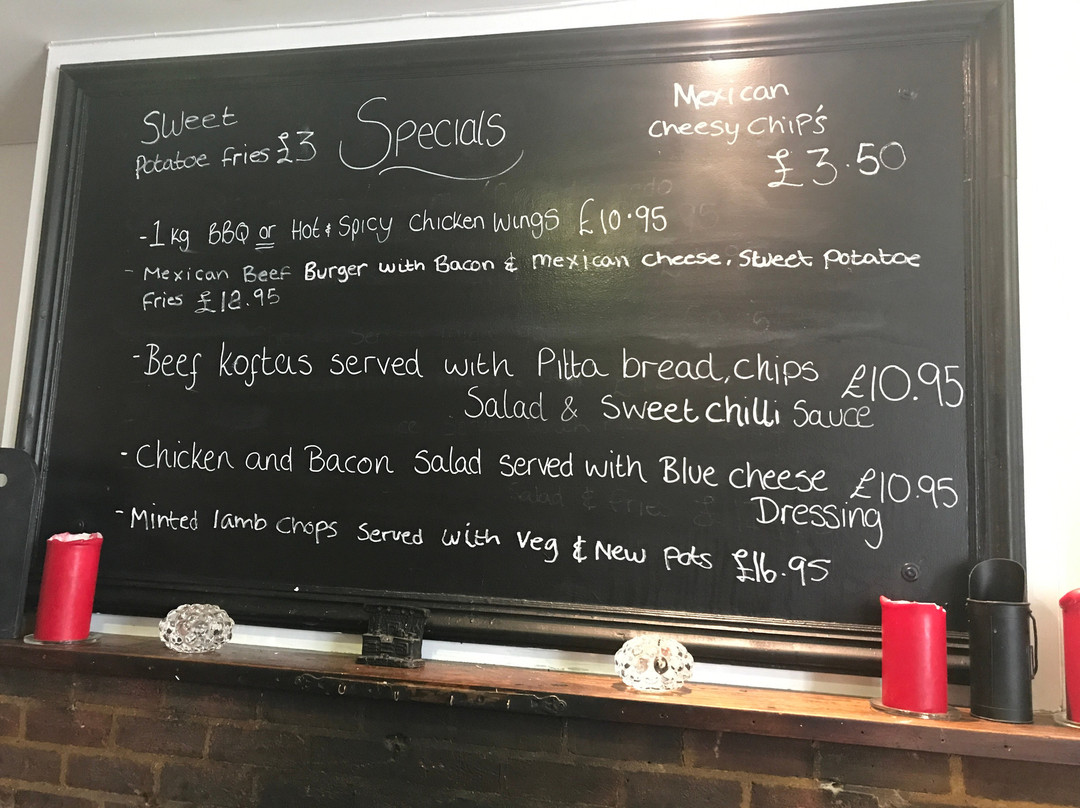 Sweet
Potatoe Fries £3
Specials
Mexican
Cheesy Chip's
£3.50
-1 kg BBQ or Hot & Spicy Chicken Wings £10.95
- Mexican Beef Burger with Bacon & mexican cheese, Sweet Potatoe
Fries £12.95
-Beef koftas served with Pitta bread, chips £10.95
Salad & Sweet chilli Sauce
-Chicken and Bacon Salad Served with Blue cheese £10.95
Dressing
-Minted lamb chops Served with Veg & New Pots £16.95